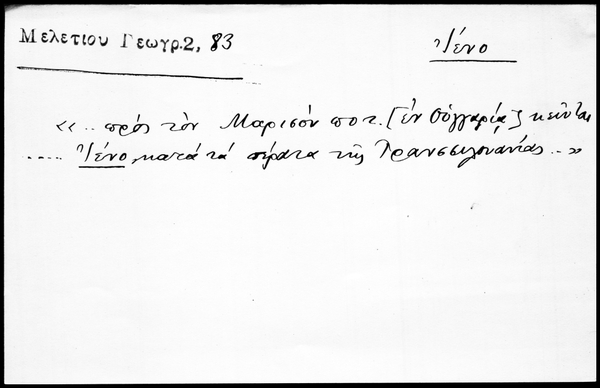 Μελετίου Γεωγρ. 2, 83
Ἰένο
«.. πρός τὸν Μαρισόν ποτ. [ἐν Οὑγγαρίᾳ] κεῖνται
..... Ἰένο, κατά τά πέρατα τῆς Τρανσσιλουανίας ..»